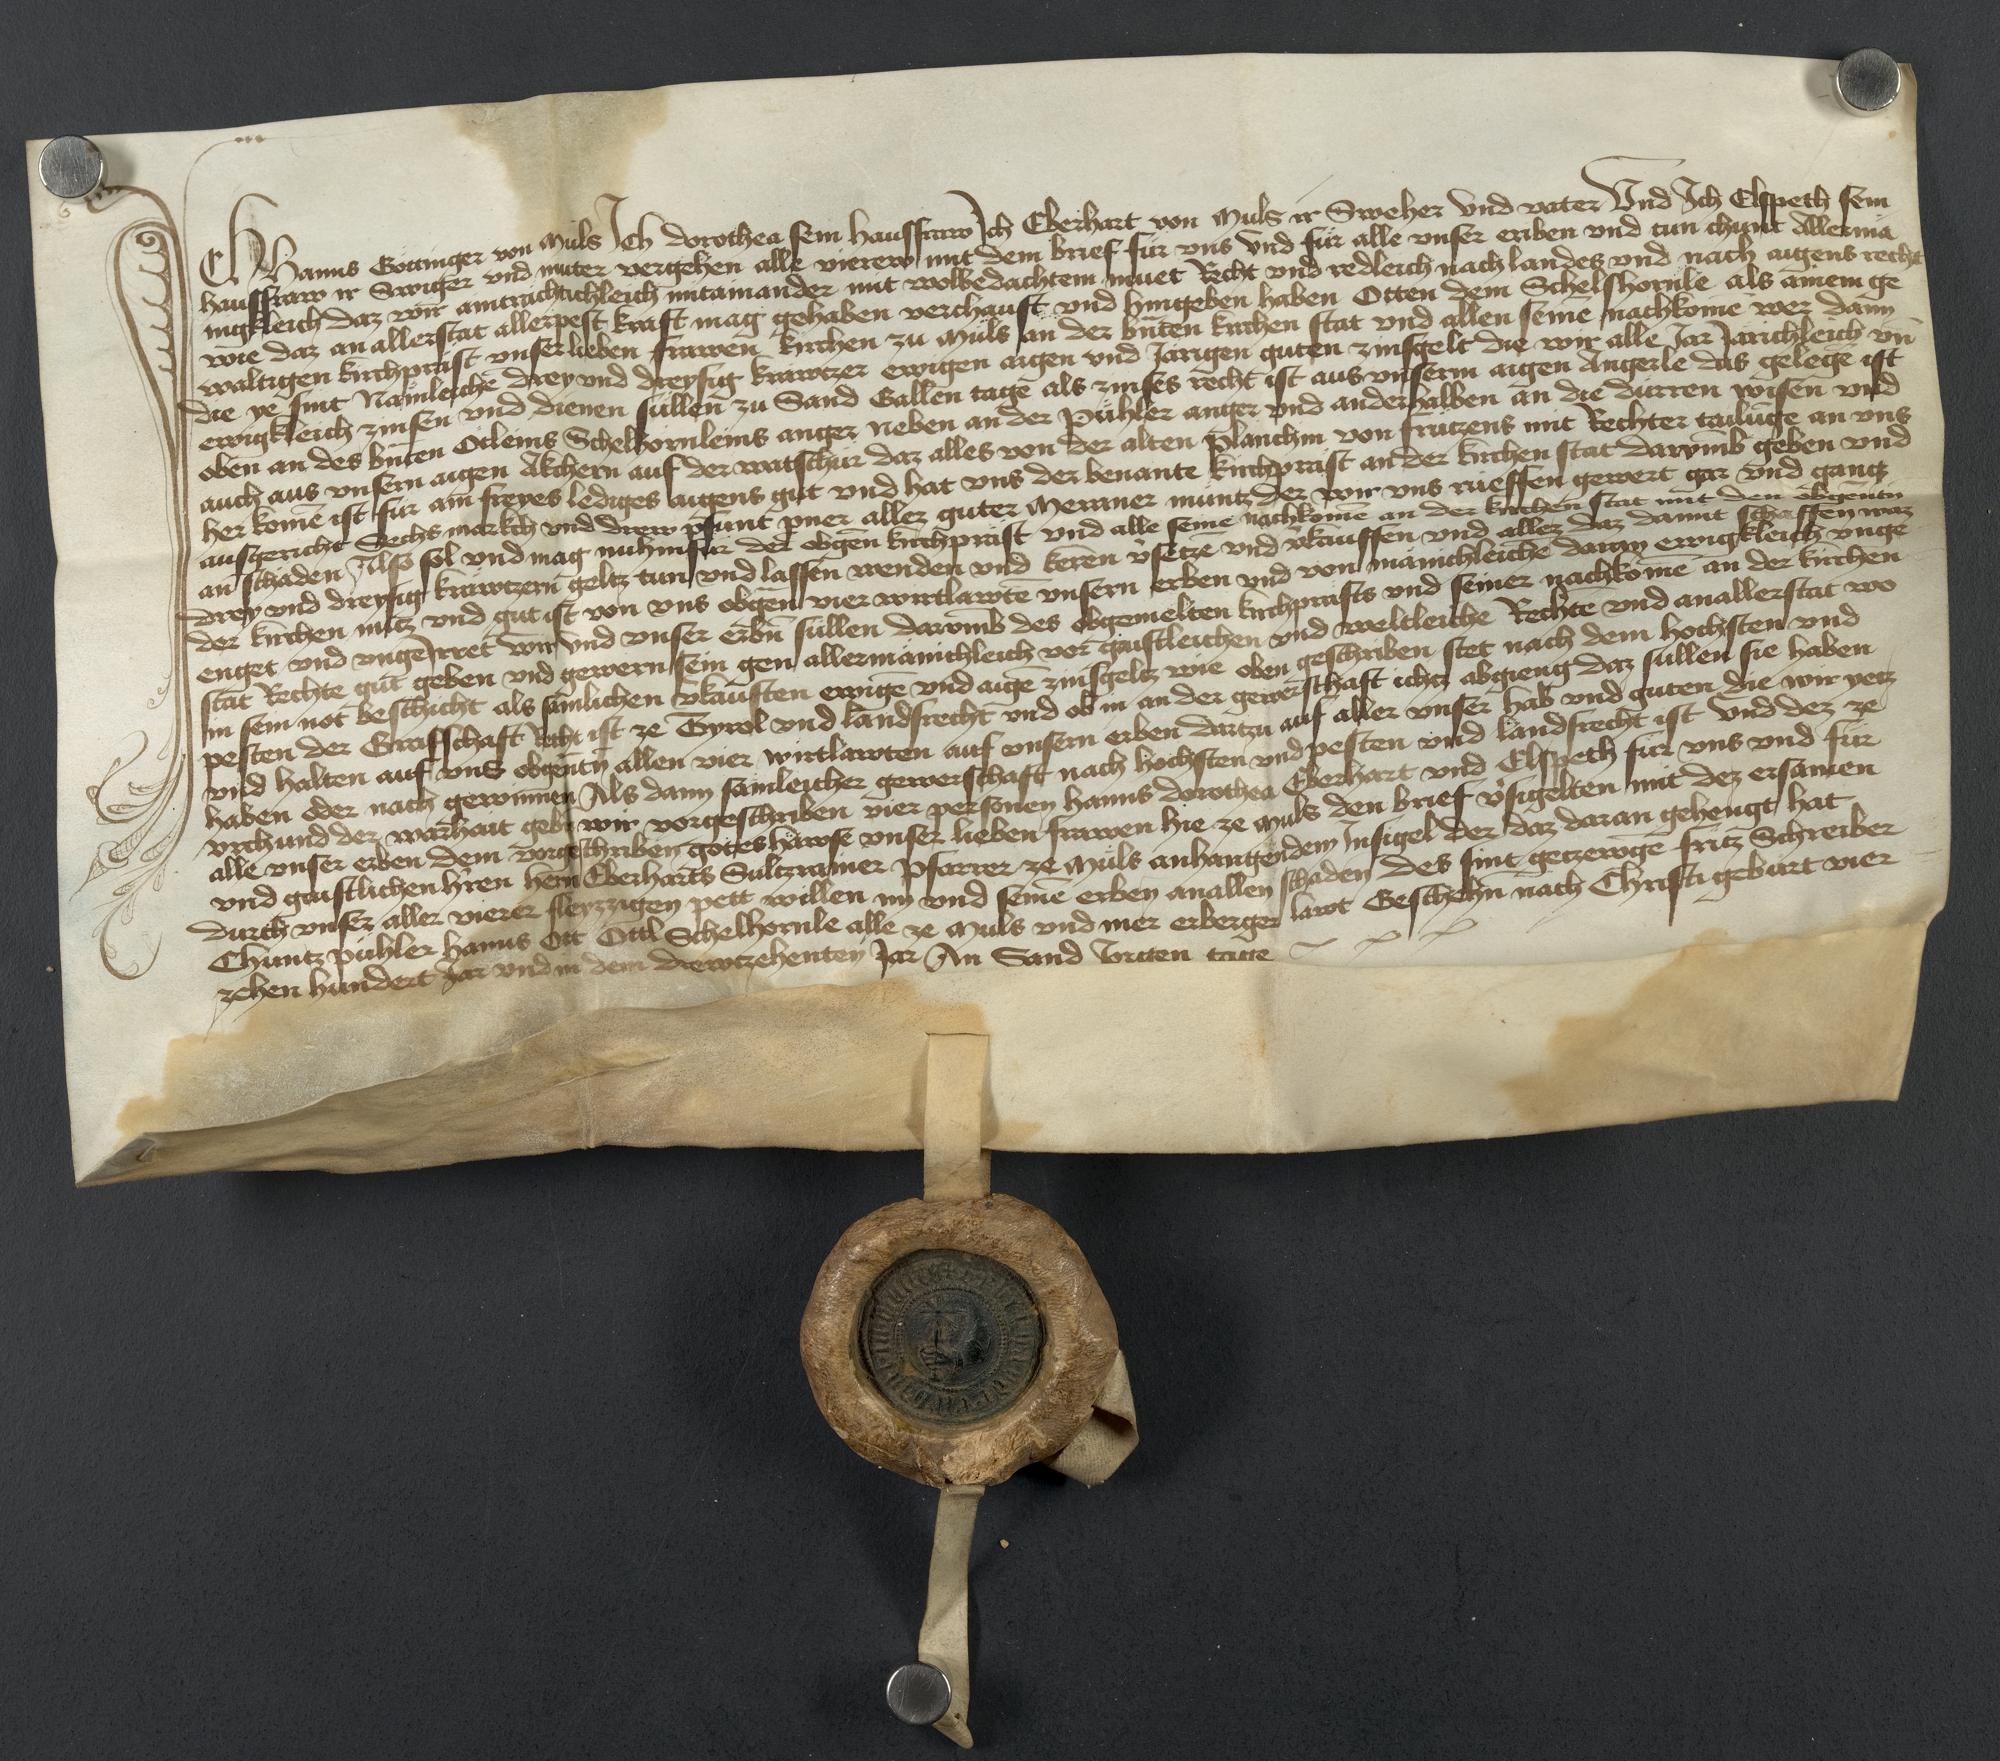 Ich Hanns Göttinger von Müls Ich dorothea sein hausfraw Ich Eberhart von Müls ir Sweher Vnd vater Vnd Ich Elspeth sein
hausfraw ir Swiger vnd muter vergehen alle vierew mit dem brief für vns vnd für alle vnser eriben vnd tun chunt Allermä
nigkleich daz wir aintrachtichleich mitainander mit wolbedachtem muet Recht vnd redleich nach landes vnd nach aigens recht
wie daz an allerstat allerpest kraft mag gehaben verchauft vnd hingeben haben Otten dem Schelshornle als ainem ge
waltigen kirchpräst vnser lieben frawen kirchen zu Müls an der bnten kirchen stat vnd allen seinē nachkomē wer dann
die ye sint Nämleichē drey vnd dreysig krawtzer ewigen aigen vnd Järigen guten zinsgelt die wir alle Jar Järichleich vn̄
ewigkleich zinsen vnd dienen süllen zu Sand Gallen tagē als zinses recht ist aus vnserm aigen Angerle das gelegē ist
oben an des bnten Otleins Schelhörnleins anger neben an der Pühler anger vnd anderhalben an die dürren wisen vnd
auch aus vnsern aigen Äkchern auf der watschür daz alles von der alten Planchin von fritzens mit Rechter tailūge an vns
her komē ist für ain freyes lediges aigens gut vnd hat vns der benante kirchpräst an der kirchen stat darvmb geben vnd
ausgericht Sechs markch vnd drew pfunt pner allez guter Meraner müntz der wir vns rüeffen gewert gar vnd gantz
an schaden Also sol vnd mag nuhinfür der obgen kirchpräst vnd alle seine nachkomē an der kirchen stat mit den obgentn
drey vnd dreysig krawtzern geltz tun vnd lassen wenden vnd keren v̄setzē vnd v̄kauffen vnd allez daz damit schaffen waz
der kirchen nütz vnd gut ist von vns obgen vier wirtlawtē vnsern erben vnd von mänichleichē daran ewigkleich vnge
enget vnd vngeirret wir vnd vnser erbn süllen darvmb des obgemelten kirchprästs vnd seiner nachkomē an der kirchen
stat Rechte gut geben vnd gewern sein gen allermänichleich vor gaistleichen vnd weltleichē Rechtē vnd anallerstat wo
in sein not beschicht als sämlichen v̄kauften ewigē vnd aigē zinsgeltz wie oben geschriben stet nach dem hochsten vnd
pesten der Grafschaft Recht ist ze Tyrol vnd landsrecht vnd ob in an der gewerschaft ichtz abgieng daz süllen sie haben
vnd halten auf vns obgentn allen vier wirtlawten auf vnsern erben dartzu auf aller vnser hab vnd guten die wir yetz
haben oder nach gewinnen Als dann sämleicher gewerschaft nach hochsten vnd pesten vnd landsrecht ist Vnd dez ze
vrchund der warhait gebn wir vorgeschriben vier personen hanns dorothea Eberhart vnd Elspeth für vns vnd für
alle vnser erben dem vorgeschriben goteshawse vnser lieben frawen hie ze Müls den brief v̄sigelten mit dez ersamen
vnd gaistlichen h̄ren hern Eberharts Sultzrainer Pfarrer ze Müls anhangendem Insigel der daz daran gehengt hat
durch vnser aller vierer fleyzzigen pett willen im vnd seinē erben anallen schaden Des sint getzewgē fritz Schreiber
Chüntz pühler hanns Ott Ottl Schelhornle alle ze Müls vnd mer erberger lawt Geschehn nach Christi gebürt vier
zehen hundert Jar vnd in dem drewtzehenten Jar An Sand Jörgen tage